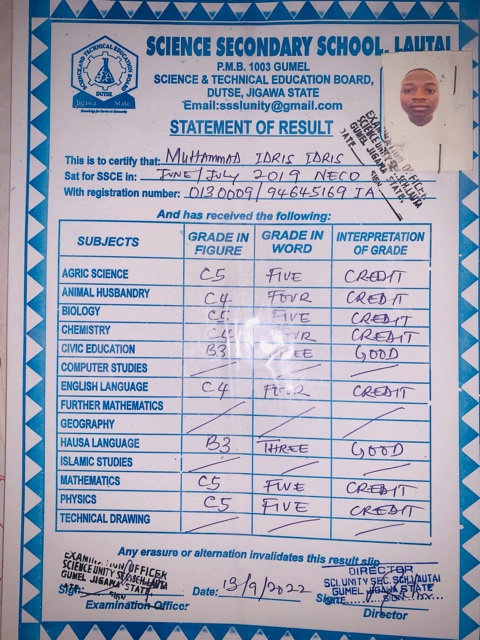 SCIENCE SECONDARY SCHOOL, LAUTAI
P.M.B. 1003 GUMEL
SCIENCE & TECHNICAL EDUCATION BOARD,
DUTSE, JIGAWA STATE
Email:ssslunity@gmail.com
SCIENCE AND TECHNICAL EDUCATION BOARD
DUTSE
Jigawa State
STATEMENT OF RESULT
EXAMINATION OFFICER
SCIENCE UNITY SEC. SCH. LAUTAI
GUMEL JIGAWA STATE.
DATE SIGN
This is to certify that: MUHAMMAD IDRIS IDRIS
Sat for SSCE in JUNE/JULY 2019 NECO
With registration number: 0130009/94645169 IA
And has received the following:
SUBJECTS GRADE IN FIGURE GRADE IN WORD INTERPRETATION OF GRADE
AGRIC SCIENCE C5 FIVE CREDIT
ANIMAL HUSBANDRY C4 FOUR CREDIT
BIOLOGY C5 FIVE CREDIT
CHEMISTRY CREDIT
CIVIC EDUCATION B3 GOOD
COMPUTER STUDIES
ENGLISH LANGUAGE C4 FOUR CREDIT
FURTHER MATHEMATICS
GEOGRAPHY
HAUSA LANGUAGE B3 THREE GOOD
ISLAMIC STUDIES
MATHEMATICS C5 FIVE CREDIT
PHYSICS C5 FIVE CREDIT
TECHNICAL DRAWING
Any erasure or alternation invalidates this result slip
EXAMINATION OFFICER
SCIENCE UNITY SEC SCH. LAUTAI
GUMEL JIGAWA STATE
Sign: Date: 13/9/2022 Sign
Examination Officer
DIRECTOR
SCI. UNITY SEC. SCH. LAUTAI
GUMEL JIGAWA STATE
Director